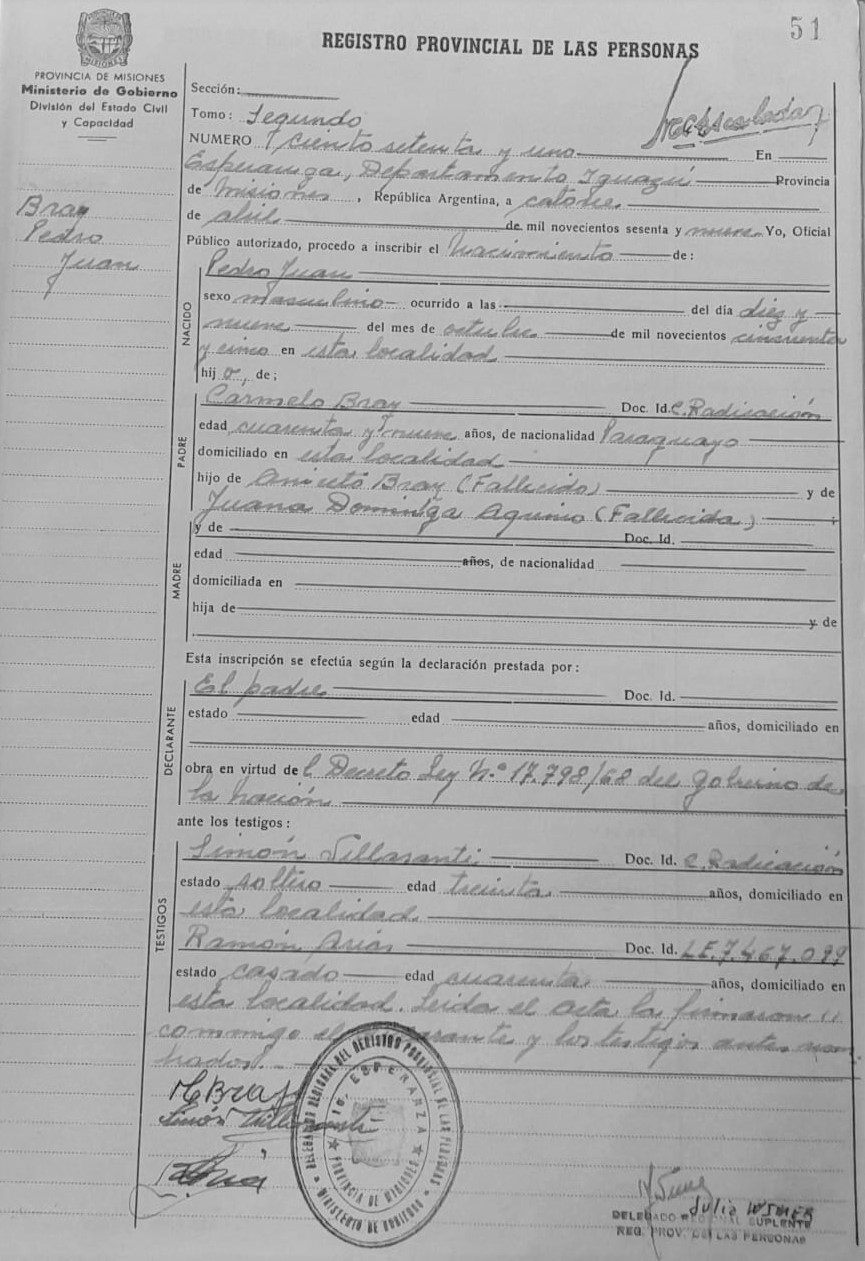 51
REGISTRO PROVINCIAL DE LAS PERSONAS
PROVINCIA DE MISIONES
Ministerio de Gobierno
División del Estado Civil
y Capacidad
Bray
Pedro
Juan
Sección:
Tomo: Segundo
NUMERO ciento setenta y uno En
Esperanza, Departamento Iguazú Provincia
de Misiones, República Argentina, a catorce
de abril de mil novecientos sesenta y nueve Yo, Oficial
Público autorizado, procedo a inscribir el Nacimiento de:
NACIDO
Pedro Juan
sexo masculino ocurrido a las del día diez y
nueve del mes de octubre de mil novecientos cincuenta
y cinco en esta localidad
hij o, de;
PADRE
Carmelo Bray Doc. Id. C. Radicación
edad cuarenta y nueve años, de nacionalidad Paraguayo
domiciliado en esta localidad
hijo de Aniceto Bray (Fallecido) y de
Juana Dominga Aquino (Fallecida)
MADRE
y de Doc. Id.
edad años, de nacionalidad
domiciliada en
hija de y de
Esta inscripción se efectúa según la declaración prestada por:
DECLARANTE
El padre Doc. Id.
estado edad años, domiciliado en
obra en virtud de l Decreto Ley N.º 17.798/68 del Gobierno de
la Nación
ante los testigos:
TESTIGOS
Simón Villasanti Doc. Id. C. Radicación
estado soltero edad treinta años, domiciliado en
esta localidad
Ramón Arias Doc. Id. L.E. 7.467.099
estado casado edad cuarenta años, domiciliado en
esta localidad. Leida el acta la firmaron
conmigo el y los testigos antes nom
brados.
C Bray
Simón Villasanti
DELEGACION REGIONAL DEL REGISTRO PROVINCIAL DE LAS PERSONAS
MINISTERIO DE GOBIERNO
ESPERANZA
PROVINCIA DE MISIONES
Julio
DELEGADO REGIONAL SUPLENTE
REG. PROV. DE LAS PERSONAS